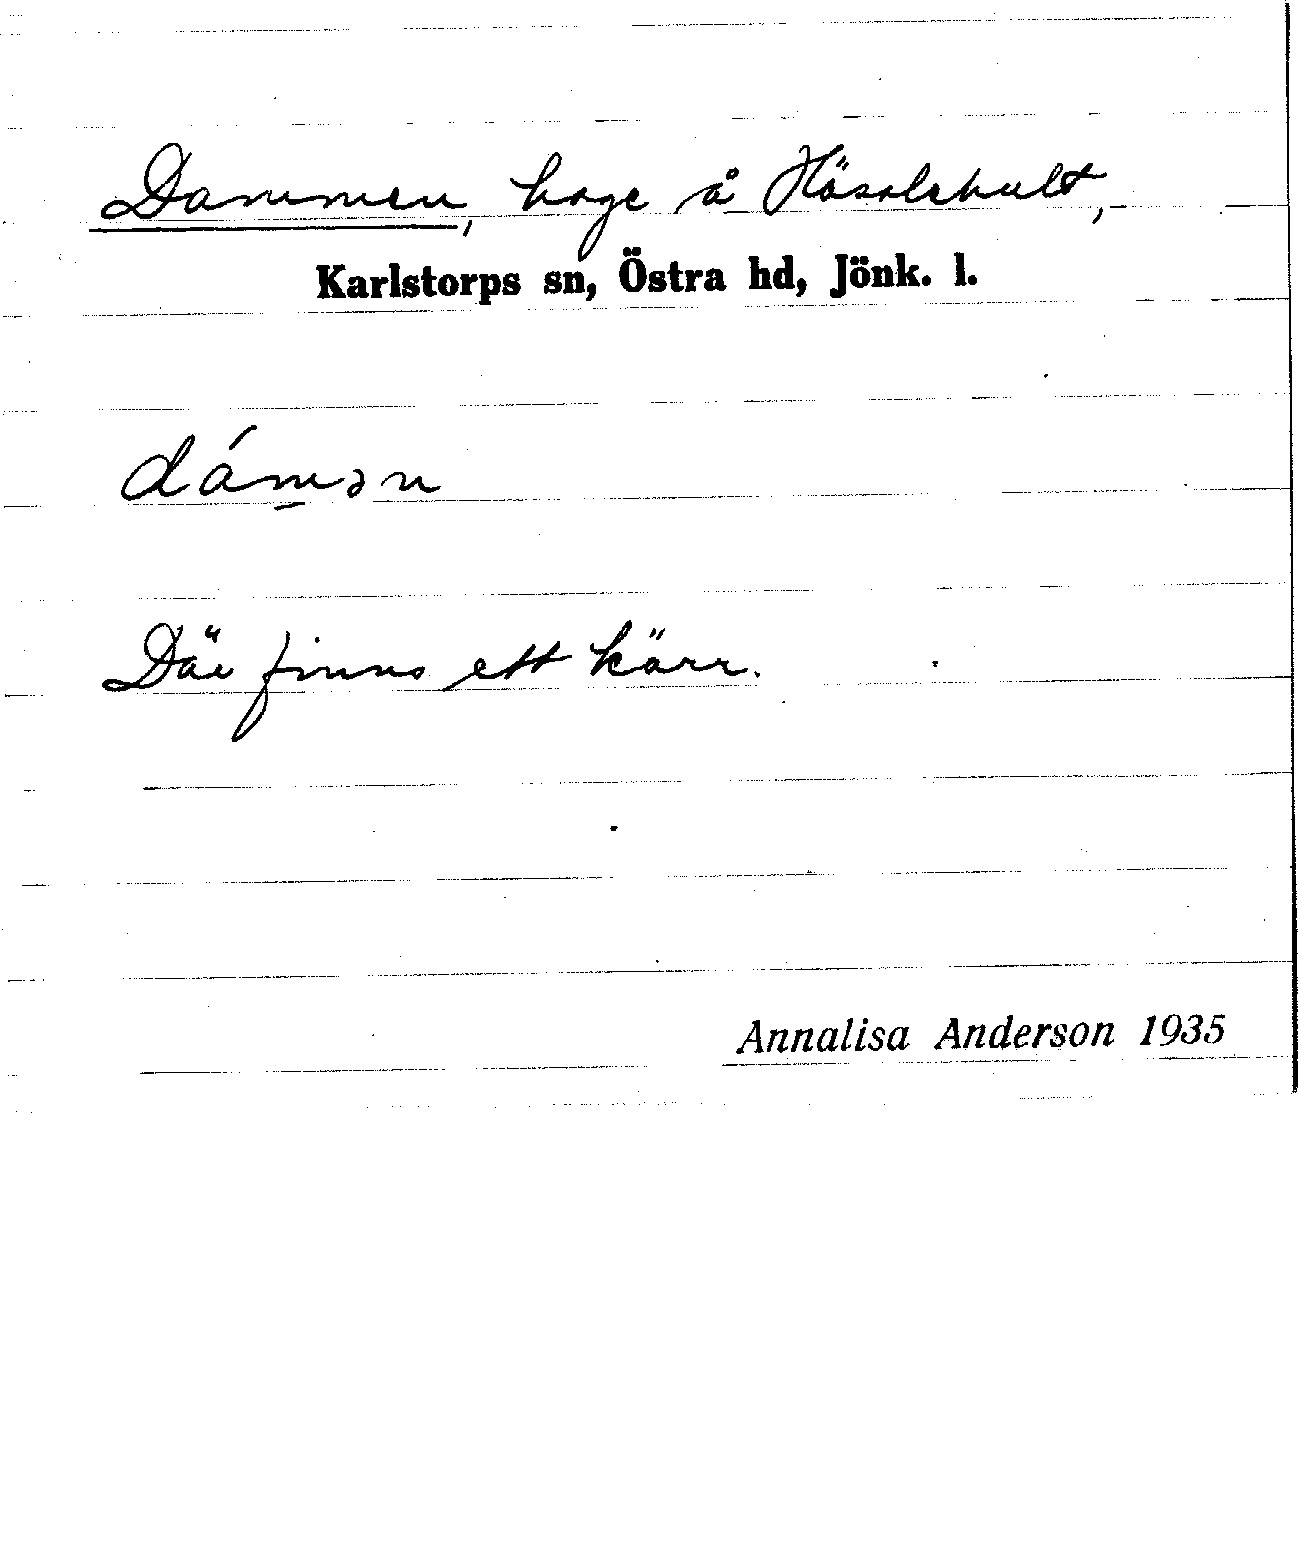 Dammen, hage å Hösolehult,
Karlstorps sn, Östra hd, Jönk. l.
dám̲ən
Där finns ett kärr.
Annalisa Anderson 1935